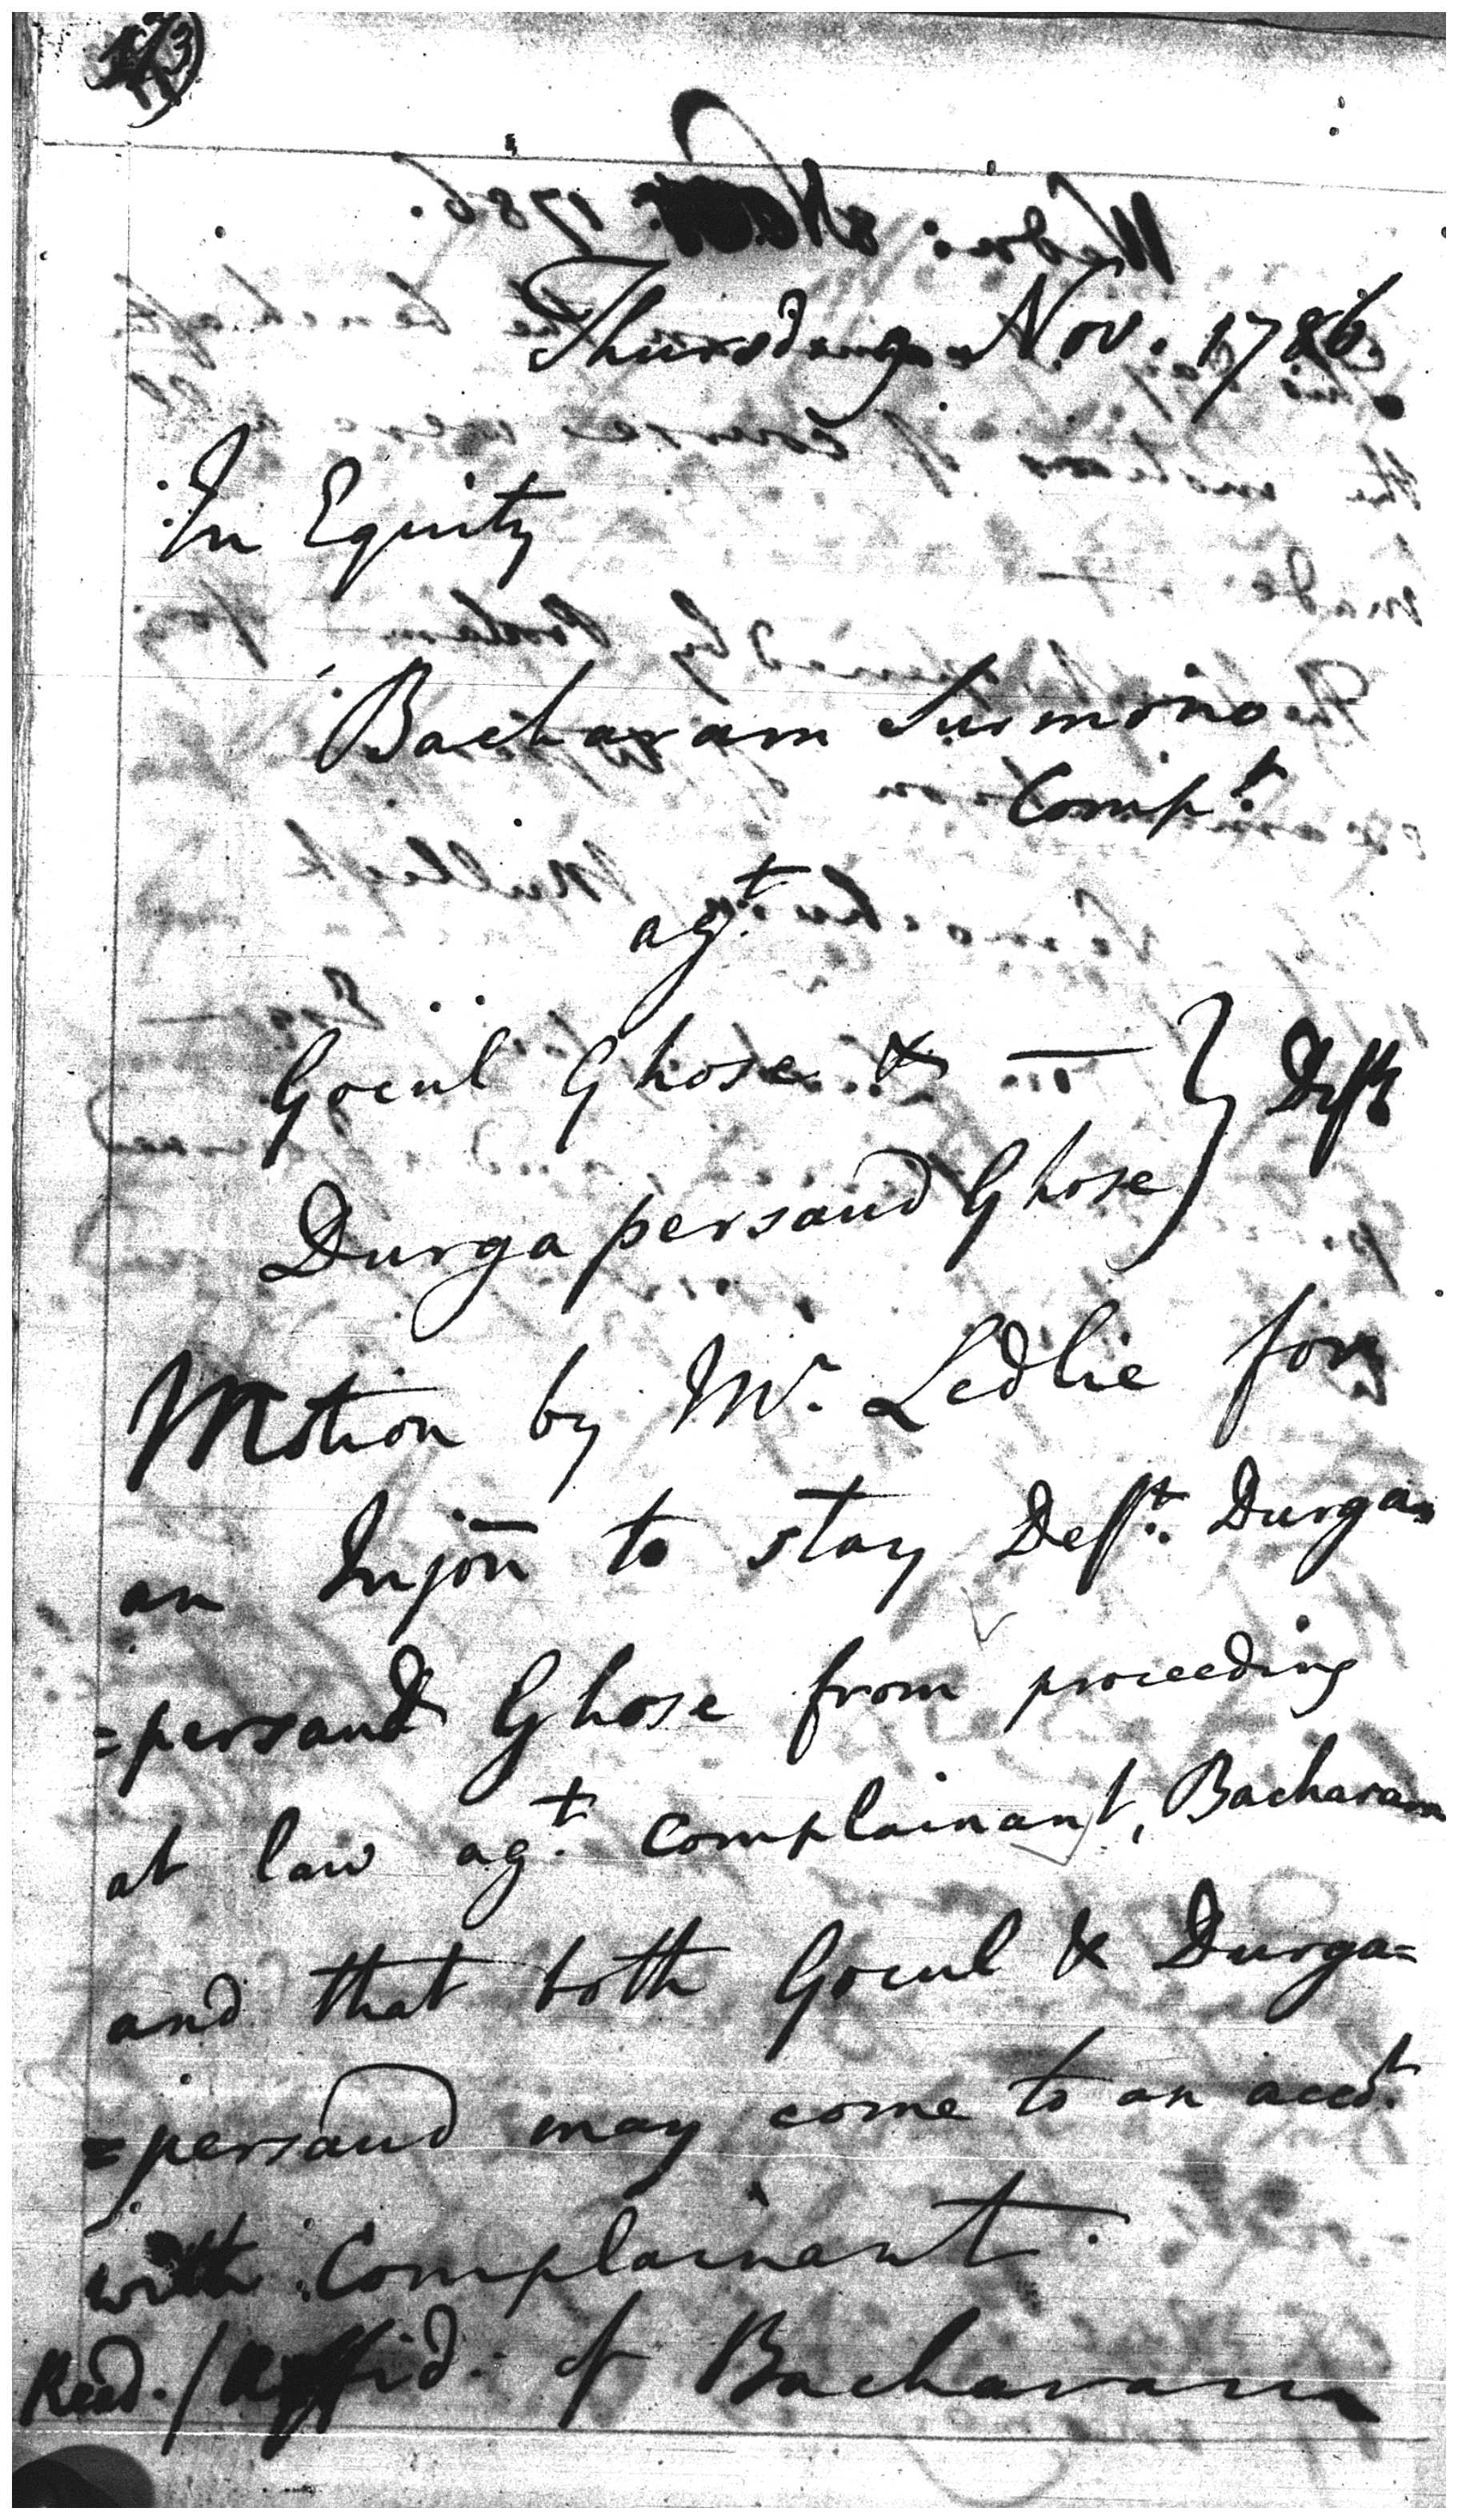 Thursday Nov. 1786
In Equity
Bacharam Surmono
Compt.
agt.
Gocul Ghose & — } Defts
Durgapersaud Ghose
Motion by Mr. Ledlie for
an Injon to stay Deft. Durga=
=persaud Ghose from proceeding
at law agt. Complainant, Bacharam
and that both Gocul & Durga=
=persaud may come to an acct.
with Complainant.
Read. / Affid. of Bacharam